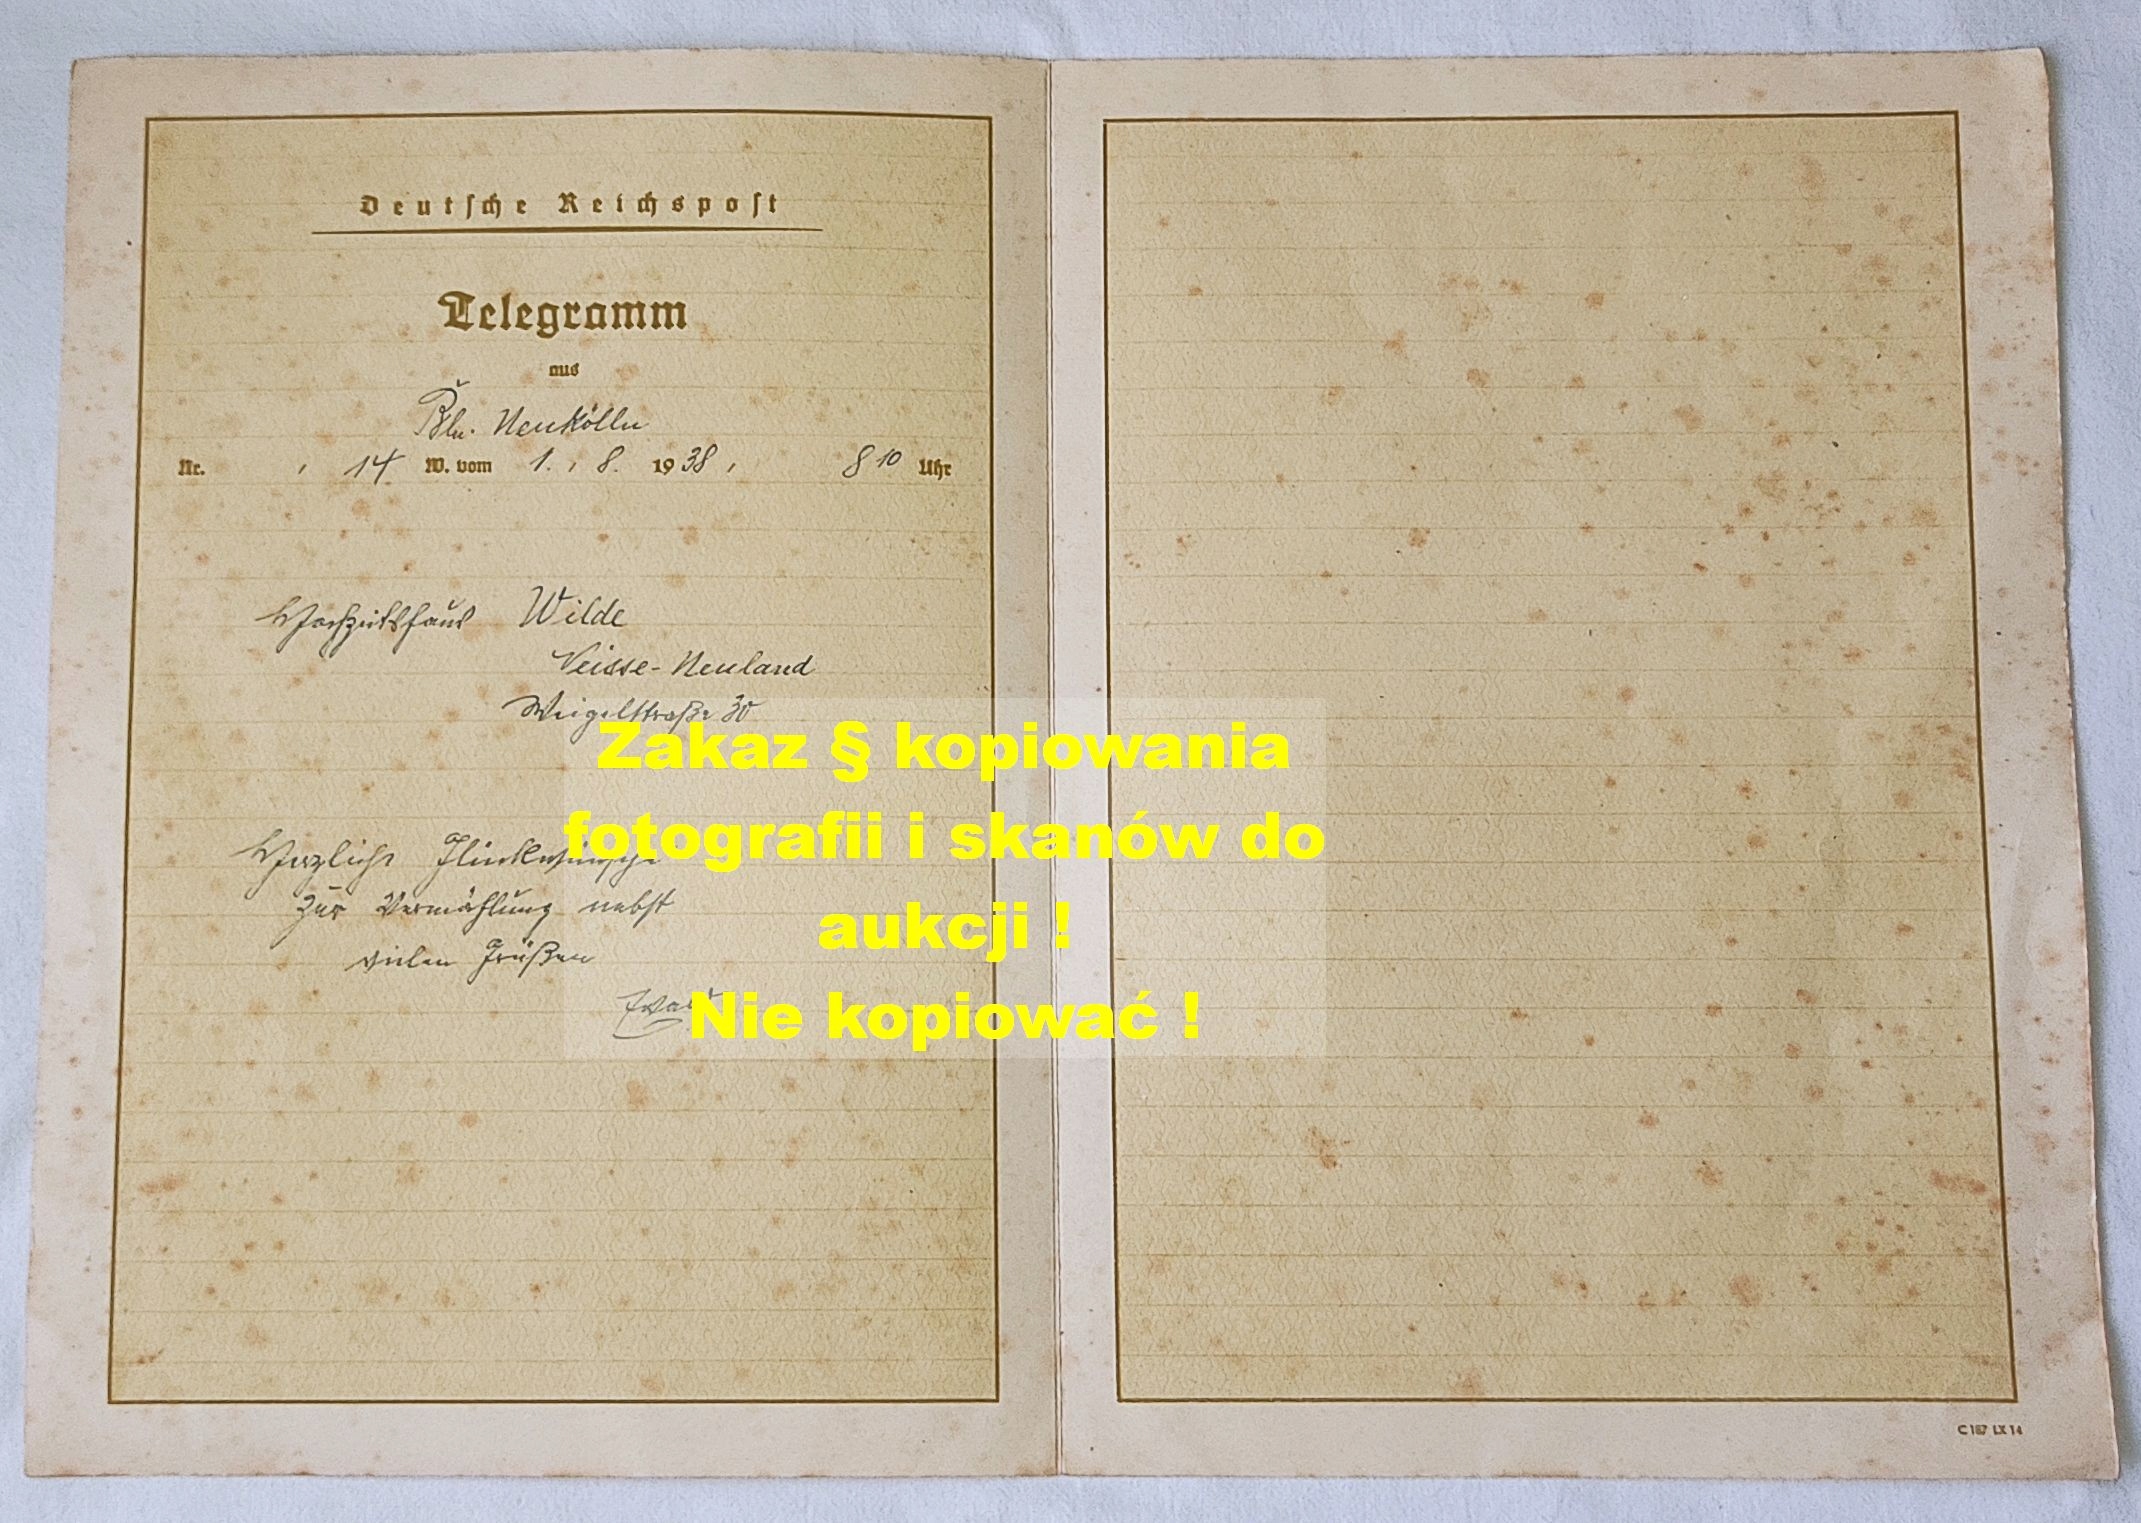 Deutsche Reichspost
Telegramm
aus
Bln. Neukölln
Nr. , 14 W. vom 1. , 8. 1938 , 8 10 Uhr
Hochzeitshaus Wilde
Neisse-Neuland
Weigelstraße 30
Herzliche Glückwünsche
zur Vermählung nebst
vielen Grüßen
Zakaz § kopiowania
fotografii i skanów do
aukcji !
Nie kopiować !
C 187 LX 14